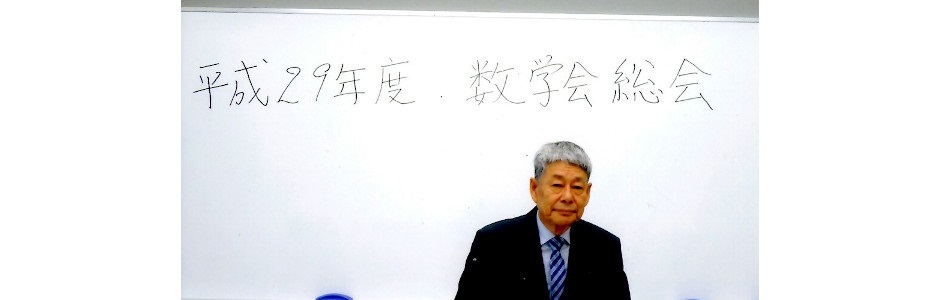 平成29年度.数学会総会